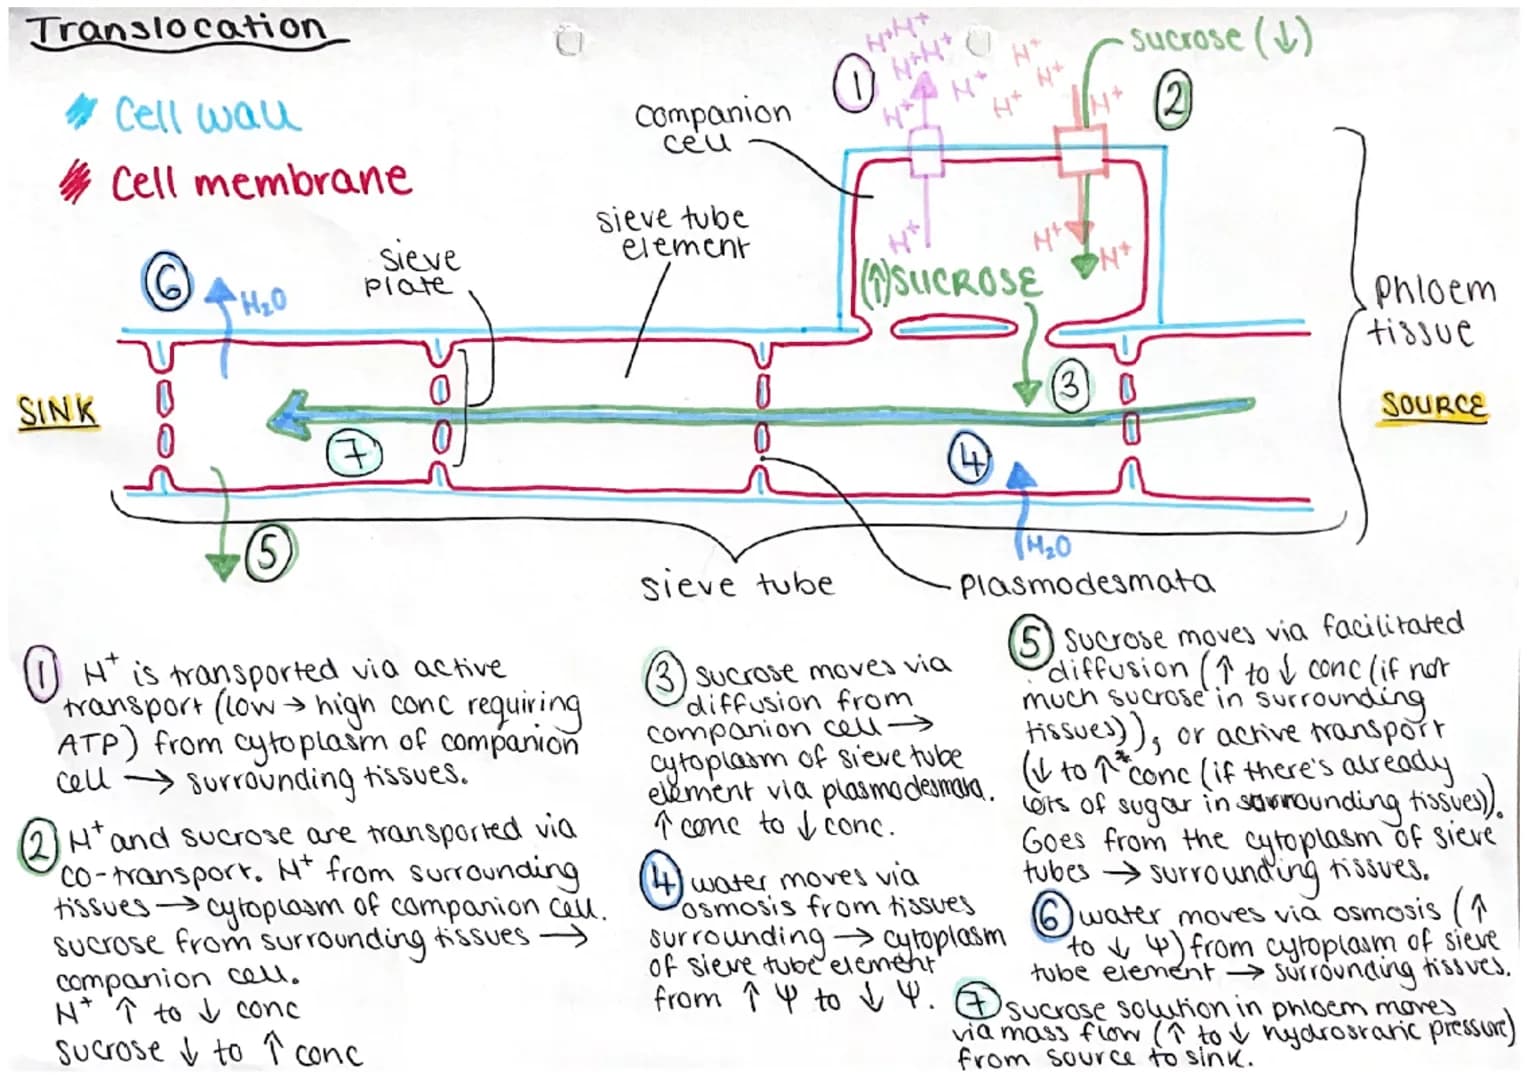 Translocation
Cell wall
Cell membrane
① 
H⁺ H⁺
H⁺ H⁺
H⁺
H⁺
H⁺
H⁺
H⁺
H⁺
sucrose (↓)
②
companion
cell
H⁺
H⁺
H⁺
(↑) SUCROSE
sieve tube
element
sieve
plate
⑥
H₂O
Phloem
tissue
SINK
SOURCE
③
⑦
④
H₂O
⑤
sieve tube
plasmodesmata
① H⁺ is transported via active
transport (low → high conc requiring
ATP) from cytoplasm of companion
cell → surrounding tissues.
② H⁺ and sucrose are transported via
co-transport. H⁺ from surrounding
tissues → cytoplasm of companion cell.
sucrose from surrounding tissues →
companion cell.
H⁺ ↑ to ↓ conc
sucrose ↓ to ↑ conc
③ sucrose moves via
diffusion from
companion cell →
cytoplasm of sieve tube
element via plasmodesmata.
↑ conc to ↓ conc.
④ water moves via
osmosis from tissues
surrounding → cytoplasm
of sieve tube element
from ↑ Ψ to ↓ Ψ.
⑤ sucrose moves via facilitated
diffusion (↑ to ↓ conc (if not
much sucrose in surrounding
tissues)), or active transport
(↓ to ↑* conc (if there's already
lots of sugar in surrounding tissues)).
Goes from the cytoplasm of sieve
tubes → surrounding tissues.
⑥ water moves via osmosis (↑
to ↓ Ψ) from cytoplasm of sieve
tube element → surrounding tissues.
⑦ sucrose solution in phloem moves
via mass flow (↑ to ↓ hydrostatic pressure)
from source to sink.